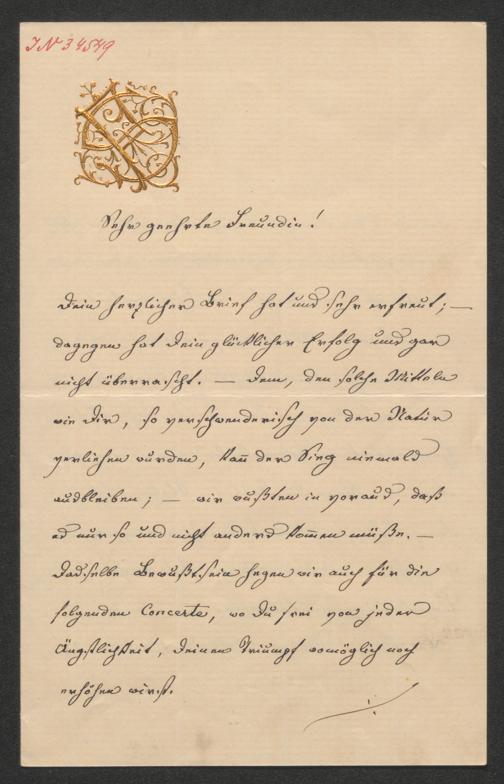 IN 34549
Sehr geehrte Freundin!
Dein herzlicher Brief hat uns sehr erfreut; —
dagegen hat Dein glücklicher Erfolg uns gar
nicht überrascht. — Dem, den solche Mitteln
wie Dir, so verschwenderisch von der Natur
verliehen wurden, kañ der Sieg niemals
ausbleiben; — wir wußten in voraus, daß
es nur so und nicht anders kom̃en müße. —
Dasselbe Bewußtsein hegen wir auch für die
folgenden Concerte, wo Du frei von jeder
Ängstlichkeit, Deinen Triumpf womöglich noch
erhöhen wirst.